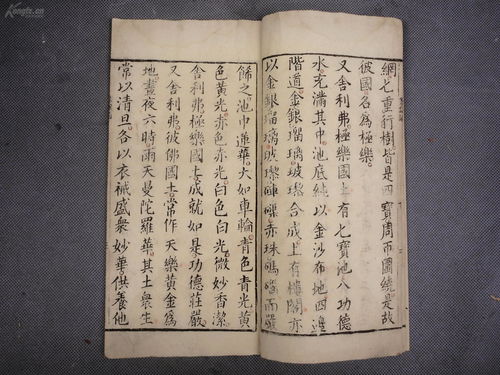 Kongfz.cn
網七重行樹皆是四寶周匝圍繞是故
彼國名為極樂
又舍利弗極樂國土有七寶池八功德
水充滿其中池底純以金沙布地四邊
階道金銀瑠璃玻瓈合成上有樓閣亦
以金銀瑠璃玻瓈硨磲赤珠碼碯而嚴
餙之池中蓮華大如車輪青色青光黄
色黄光赤色赤光白色白光微妙香潔
舍利弗極樂國土成就如是功德莊嚴
又舍利弗彼佛國土常作天樂黄金為
地晝夜六時雨天曼陀羅華其土衆生
常以清旦各以衣裓盛衆妙華供養他